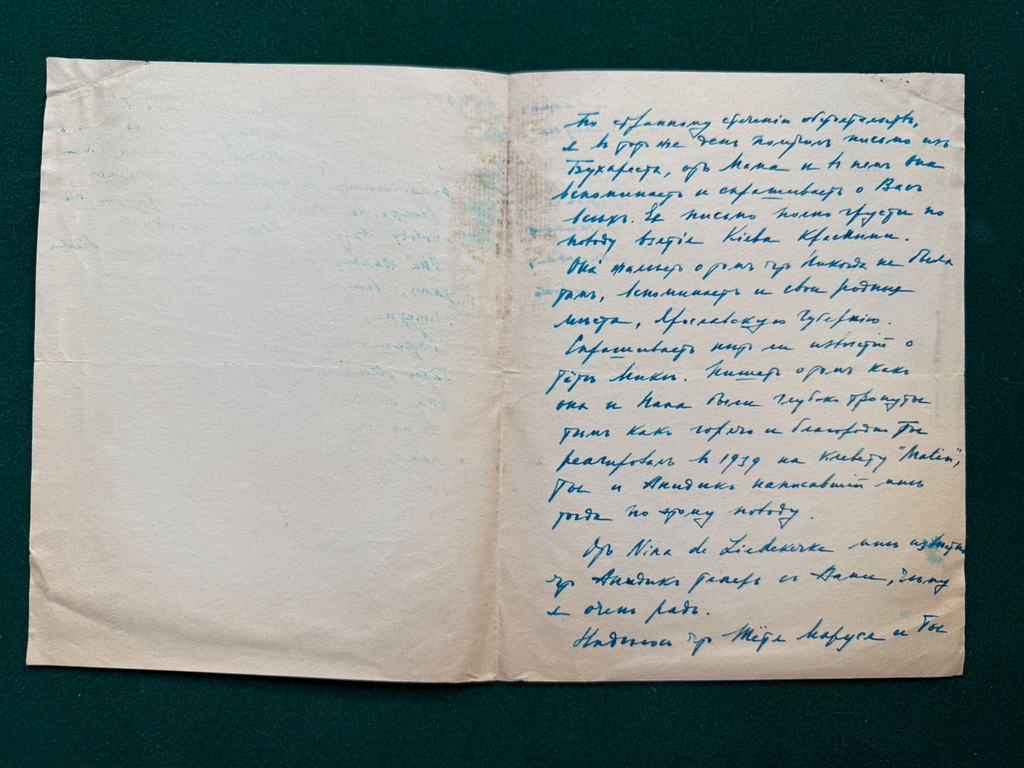 По странному стеченію обстоятельствъ,
я въ тотъ же день получилъ письмо изъ
Бухареста, отъ Мама и въ немъ она
вспоминаетъ и спрашиваетъ о Васъ
всѣхъ. Ея письмо полно грусти по
поводу взятія Кіева красными.
Она жалѣетъ о томъ что никогда не была
тамъ, вспоминаетъ и свои родныя
мѣста, Ярославскую Губернію.
Спрашиваетъ нѣтъ ли извѣстій о
тётѣ Мики. Пишетъ о томъ какъ
она и Папа были глубоко тронуты
тѣмъ какъ горячо и благородно Ты
реагировалъ въ 1939 на клевету "Matin",
Ты и написавшій имъ
тогда по этому поводу.
Отъ Nina de Liedekerke мнѣ извѣстно
что теперь съ Вами, чему
я очень радъ.
Надѣюсь что Тётя Маруся и Ты